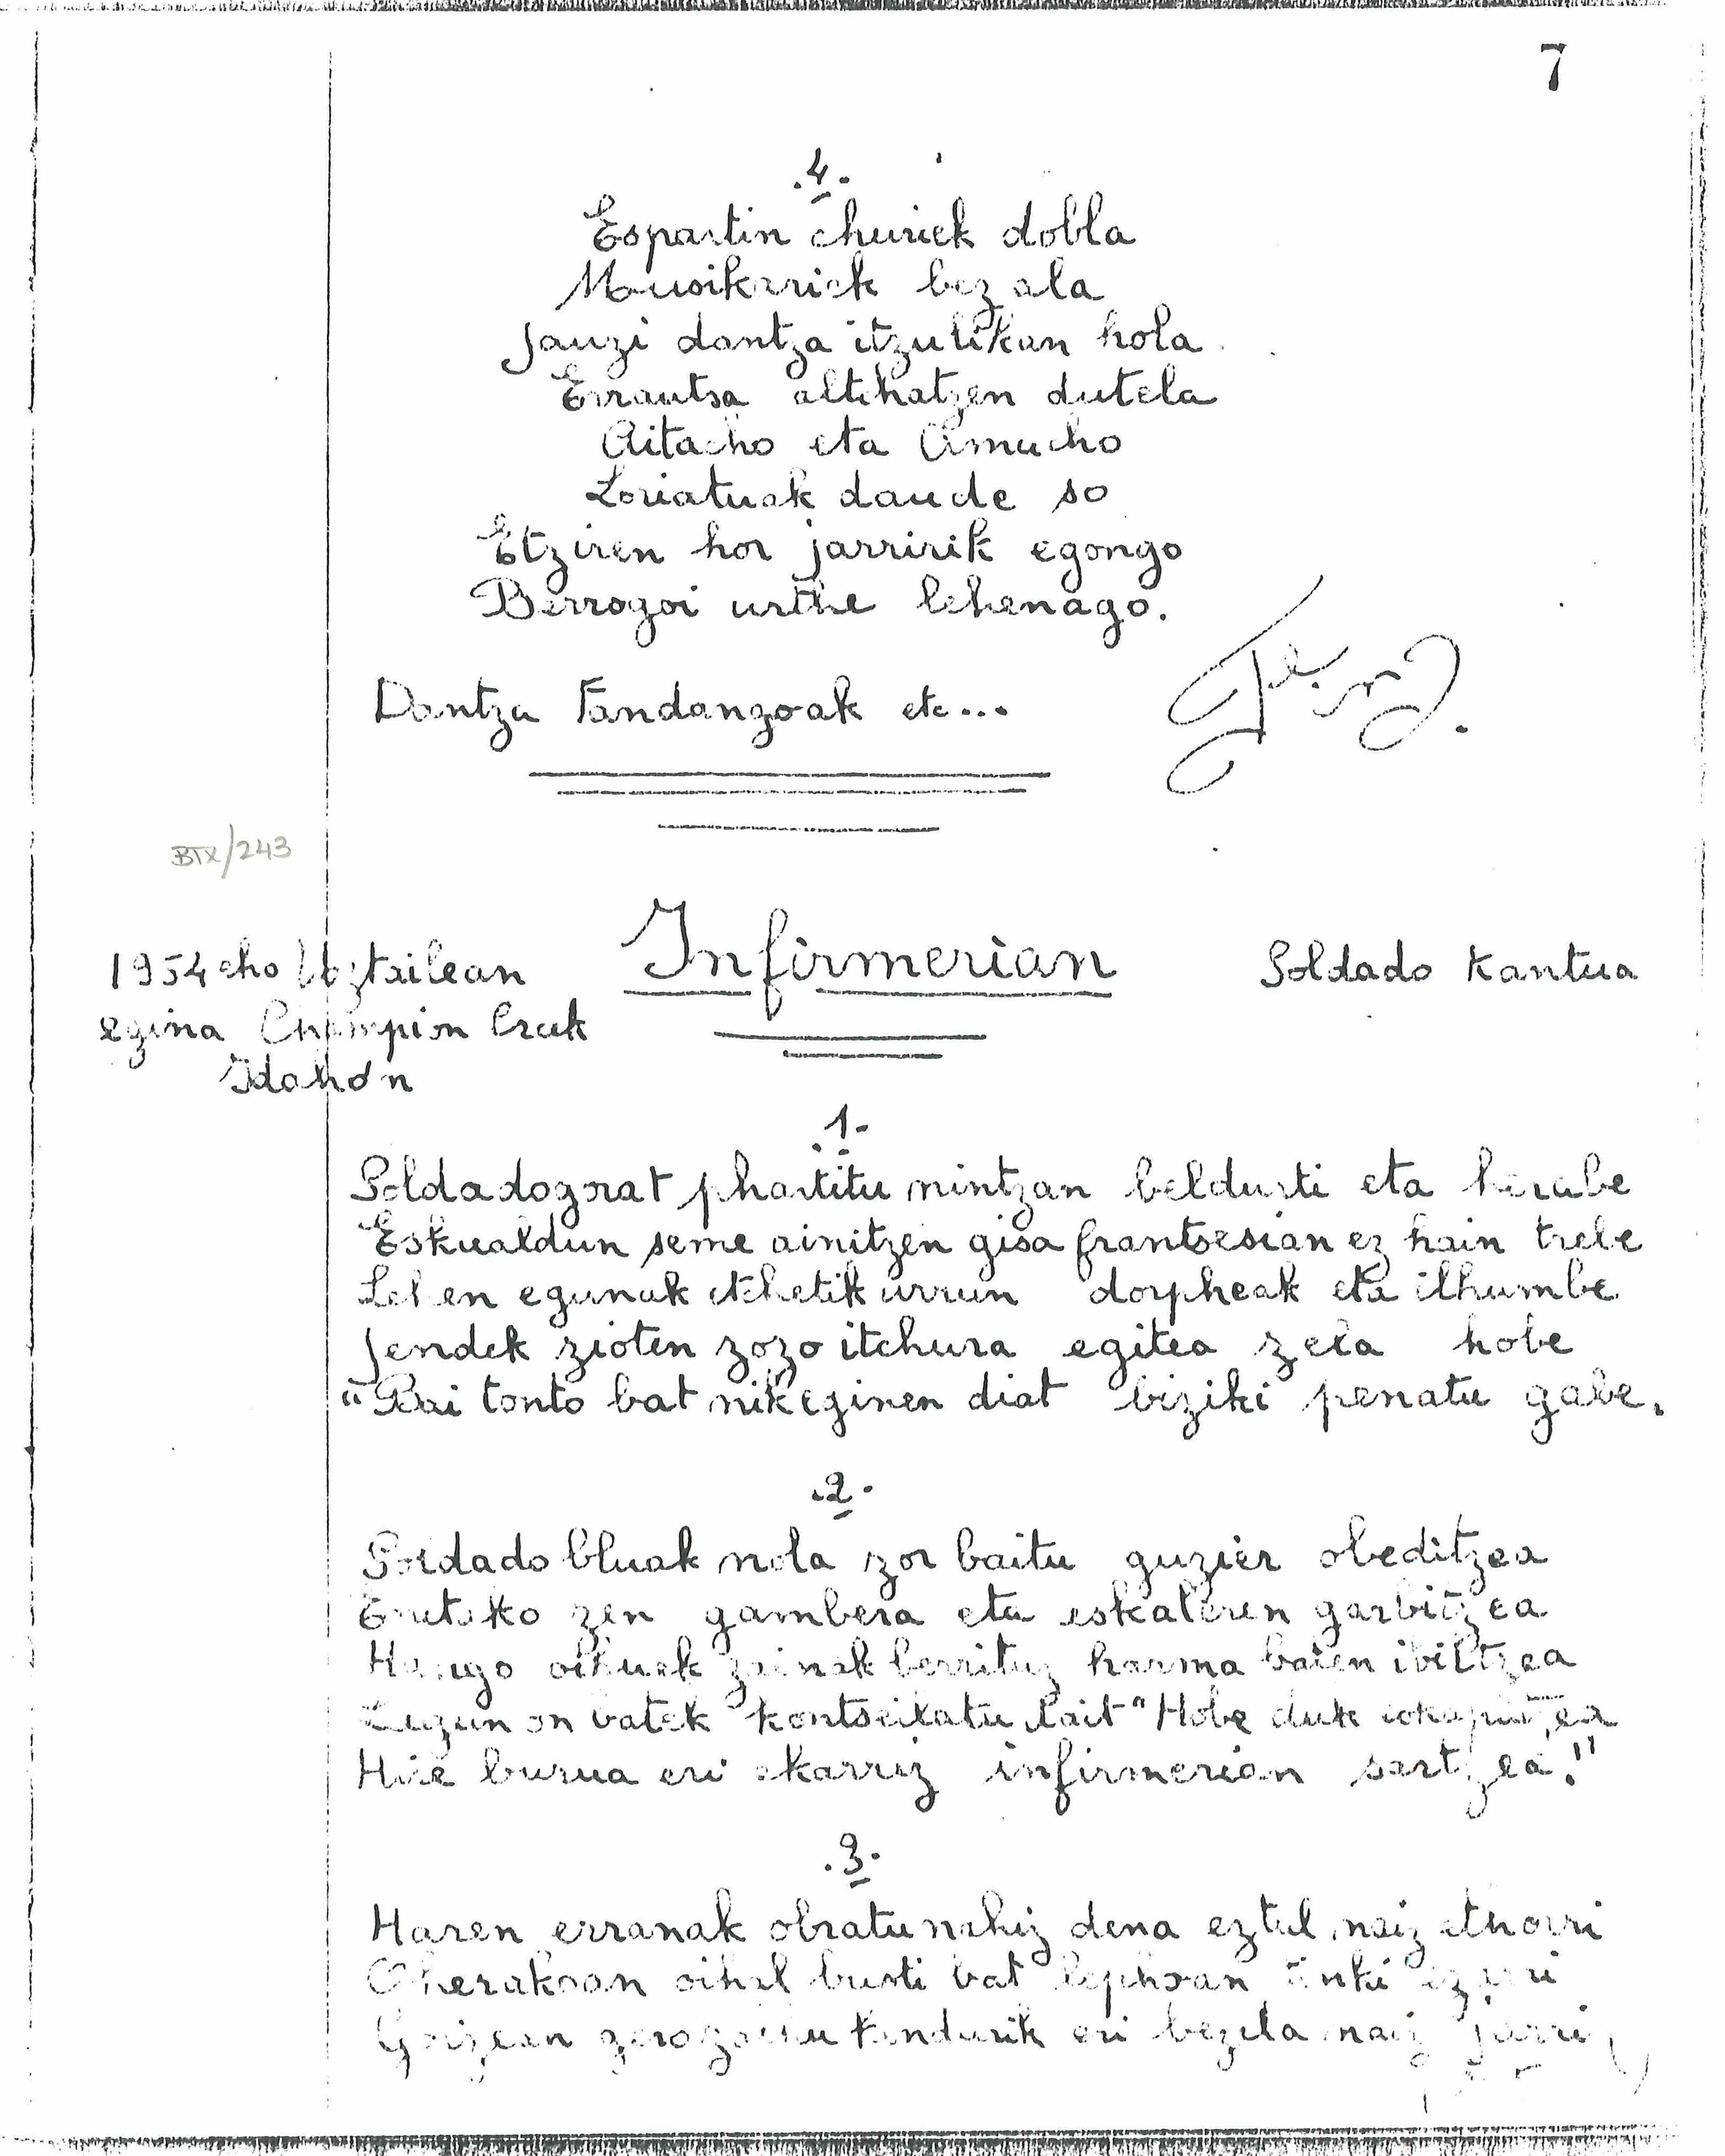 7
.4.
Espartin churiek dobla
Musikeriek bezala
Jauzi dantza itzulikan hola
Errautsa altchatzen dutela
Aitacho eta Amacho
Loriatuak daude so
Etziren hor jarririk egongo
Berrogoi urthe lehenago.
Dantza Fandangoak etc...
BTX/243
1954eho Uztailean
egina Champion Creek
Idahon
Infirmerian
Soldado kantua
.1.
Soldadogorat phartitu nintzan beldurti eta herabe
Eskualdun seme ainitzen gisa frantsesian ez hain trebe
Lehen egunak etchetik urrun dorpheak eta ilhumbe
Jendek zioten zozo itchura egitea zela hobe
"Bai tonto bat nik eginen diat biziki penatu gabe.
.2.
Soldado bluak nola zor baitu guzier obeditzea
Enetako zen gambera eta eskaleren garbitzea
Hango oihuek zainak berrituz harma baien ibiltzea
Lagun on batek kontseilatu nait "Hobe duk eokapatzea
Hire burua eri ekarriz infirmerian sartzea."
.3.
Haren erranak obratu nahiz dena eztul naiz ethorri
Oherakoan oihal busti bat lephoan tinki ezarri
Goizean kandurik eri bezela naiz jarri